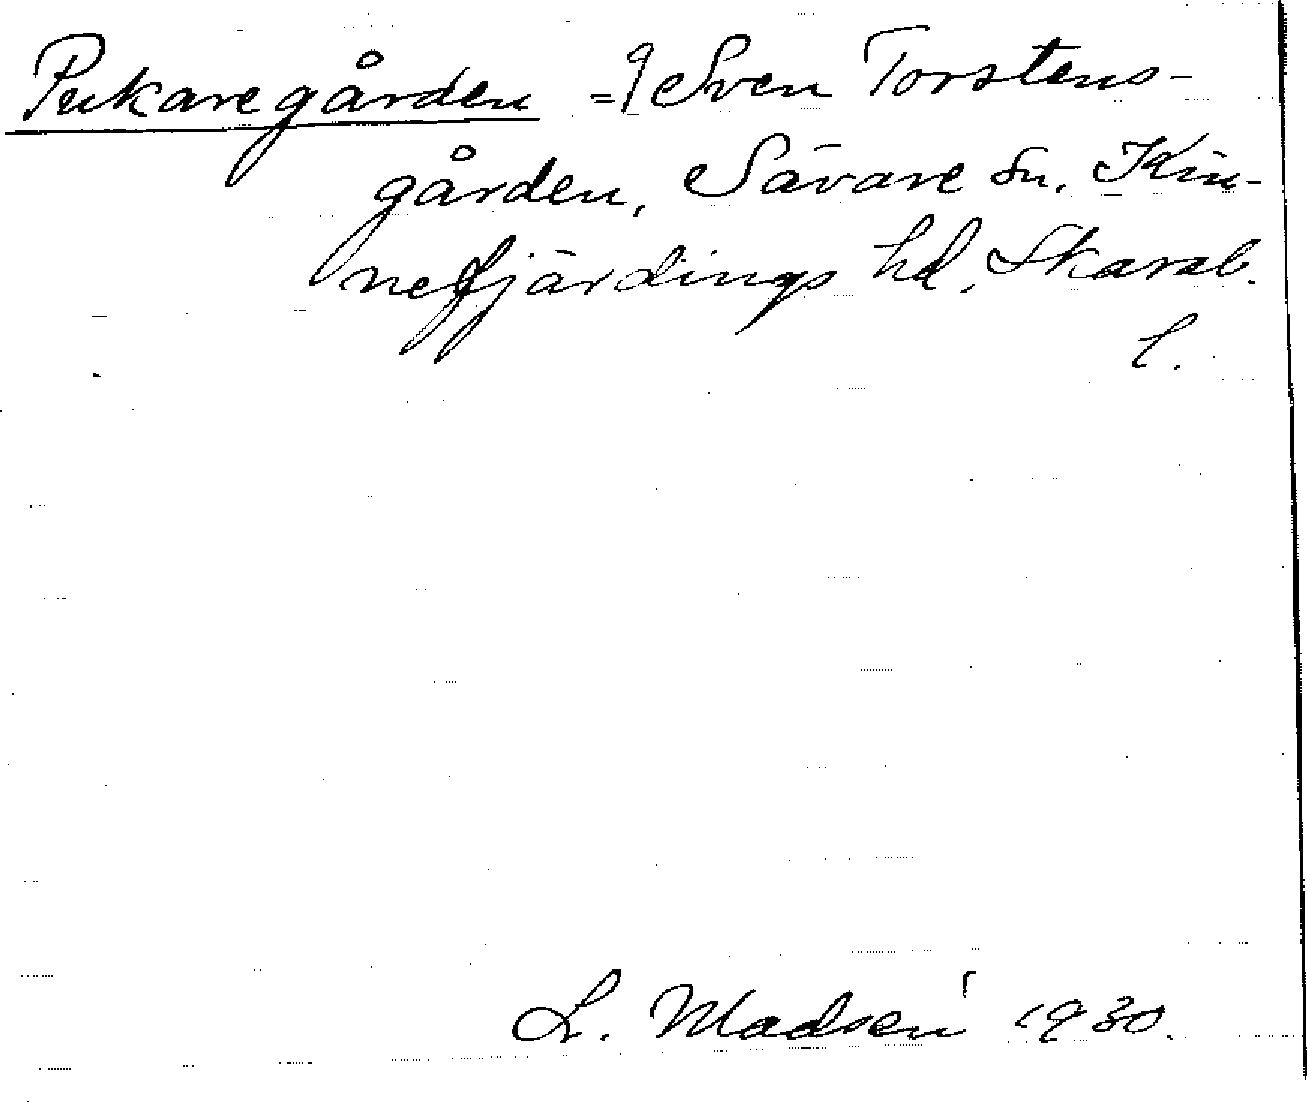 Pukaregården = Sven Torstens-
gården, Sävare sn, Kin-
nefjärdings hd, Skarab.
l.
L. Madsén 1930.